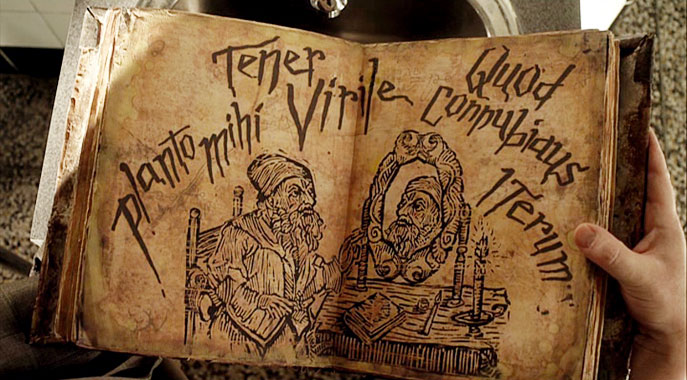 planto mihi
Tener
Virile
Quod
Iterum